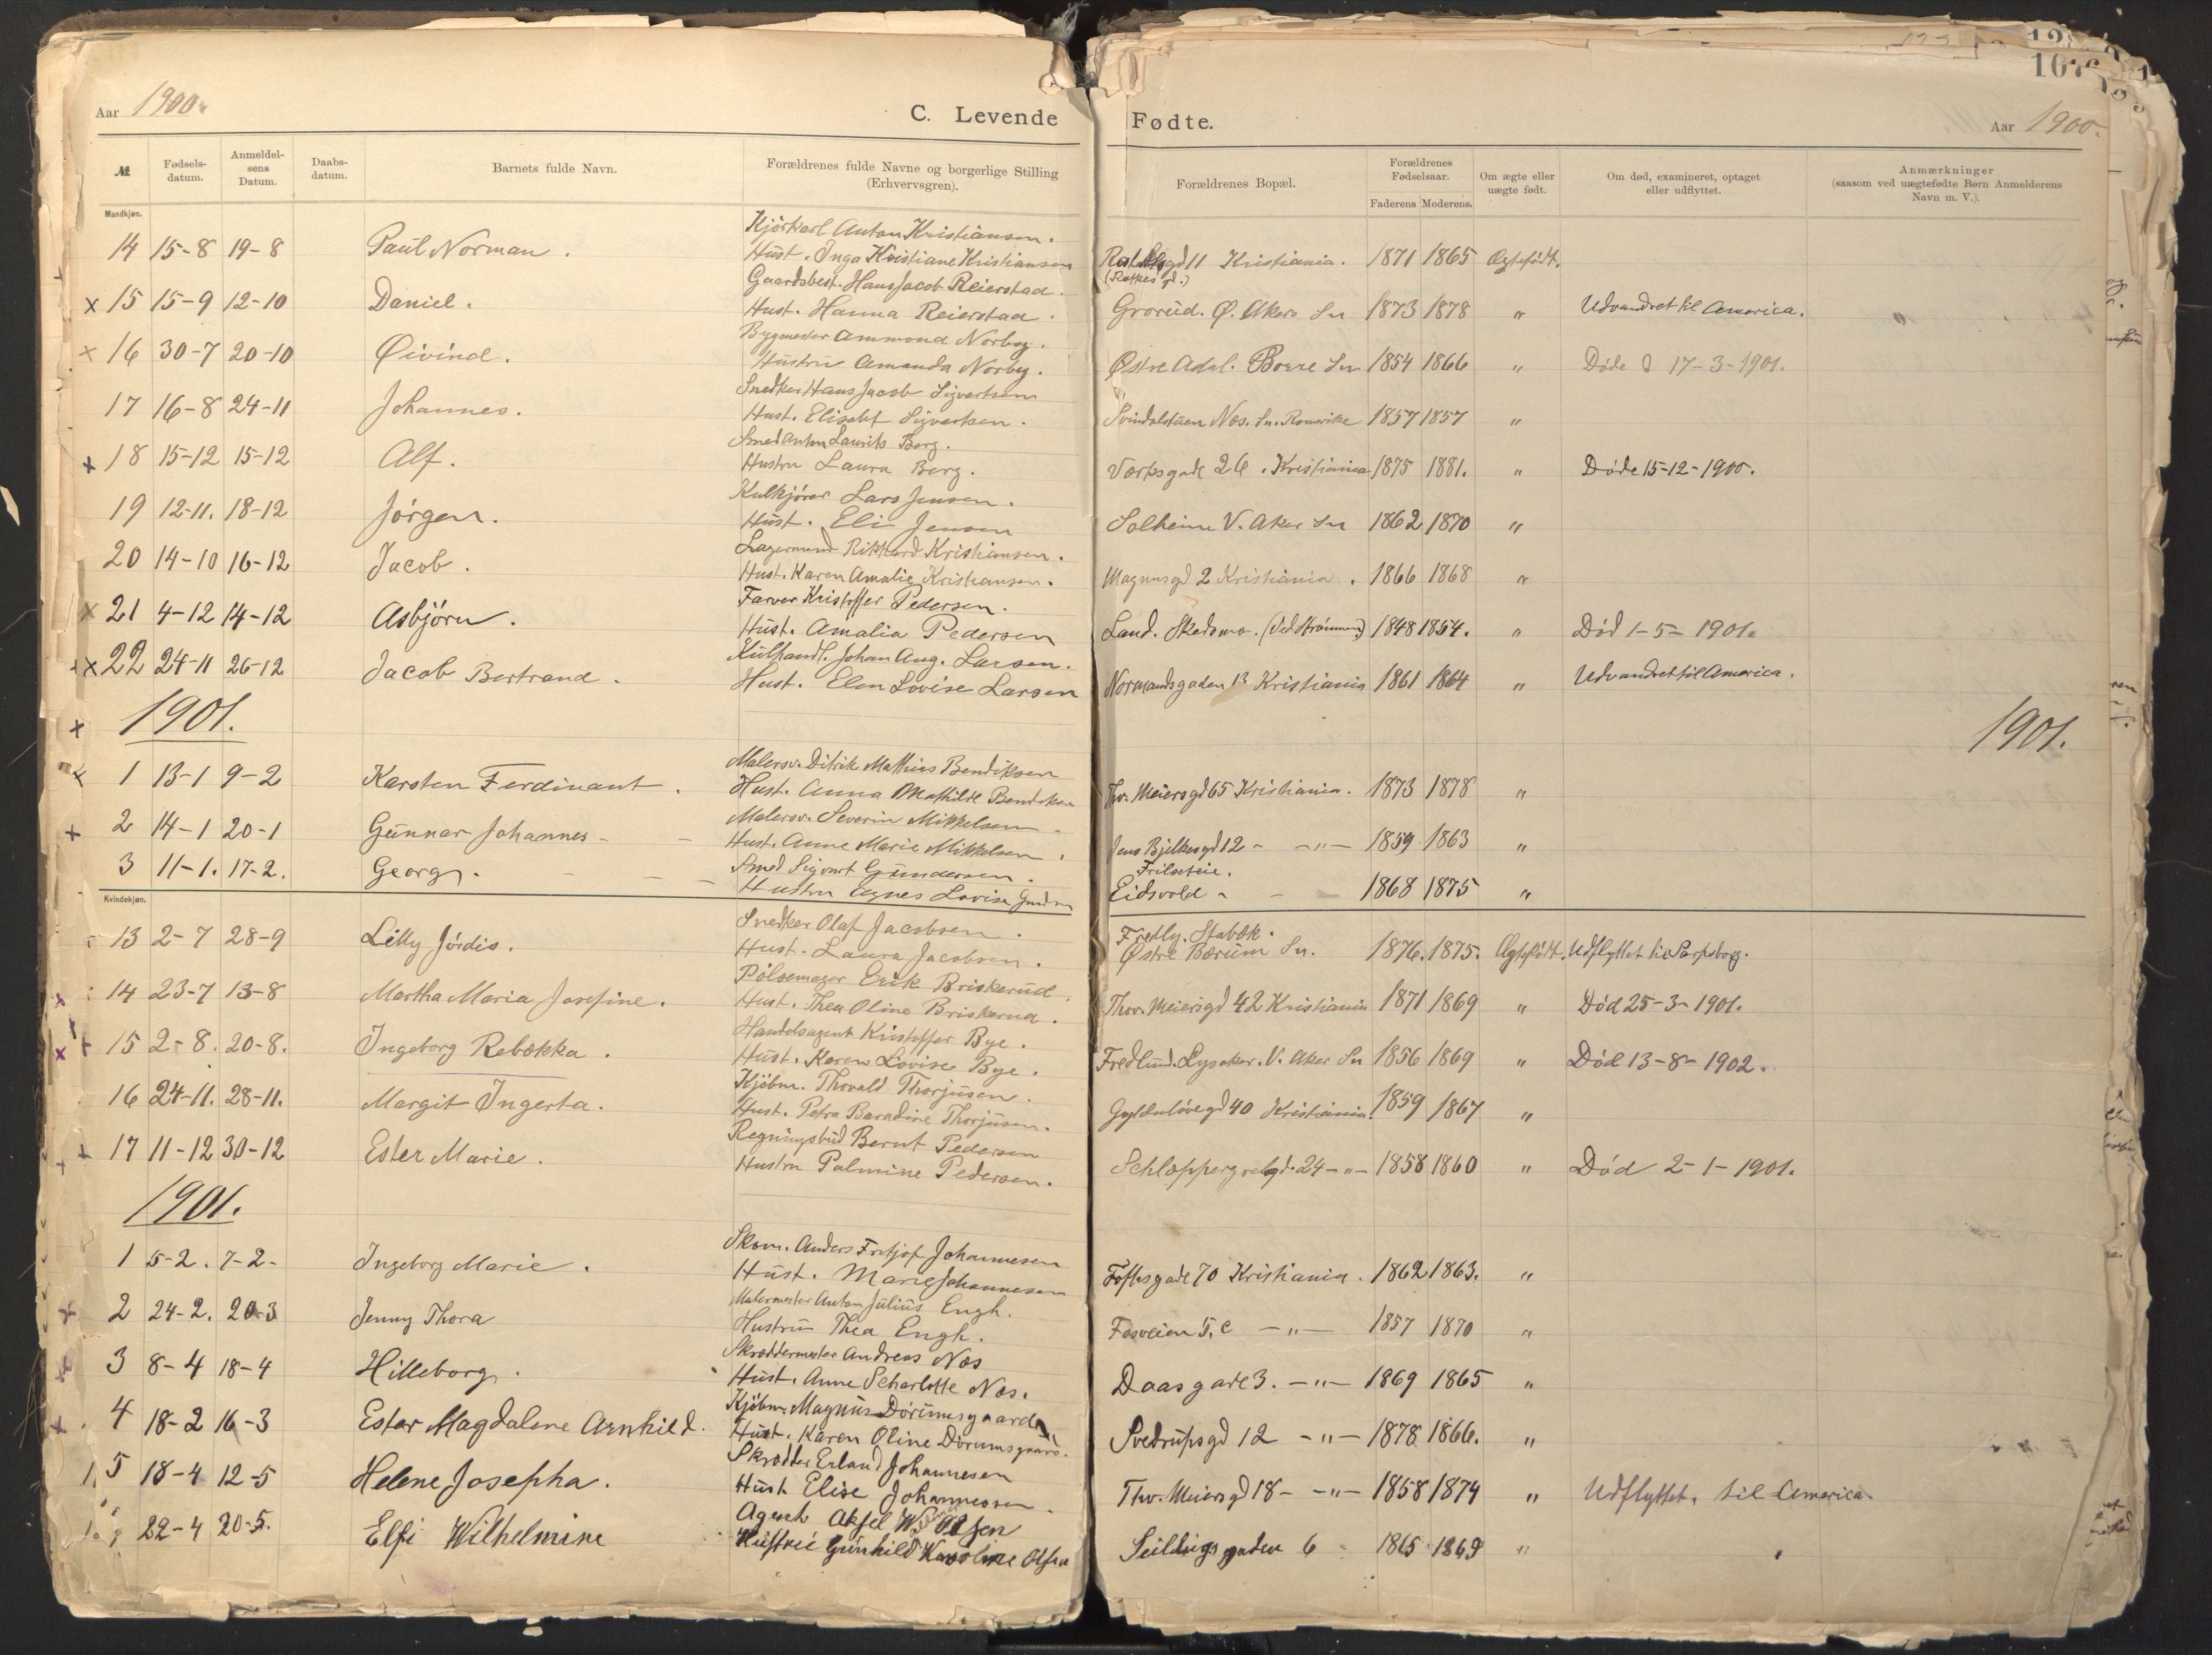 Aar 1900.
C. Levende Fødte.
Aar 1900.
№ Fødselsdatum. Anmeldelsens Datum. Daabsdatum. Barnets fulde Navn. Forældrenes fulde Navne og borgerlige Stilling (Erhvervsgren). Forældrenes Bopæl. Forældrenes Fødselsaar. Faderens Moderens. Om ægte eller uægte født. Om død, examineret, optaget eller udflyttet. Anmærkninger (saasom ved uægtefødte Børn Anmelderens Navn m. V.).
Mandkjøn.
Kjörkarl Anton Kristiansen.
14 15-8 19-8 Paul Norman. Hust. Inga Kristiane Kristiansen gd 11 Kristiania. 1871 1865 Ægtefödt.
Gaardsbest. Hans Jacob Reierstad. (Rathkes gd.)
x 15 15-9 12-10 Daniel. Hust. Hanna Reierstad. Grorud. Ø. Akers Sn 1873 1878 " Udvandret til America.
Bygmester Ammond Norby.
x 16 30-7 20-10 Øivind. Hustru Amanda Norby. Østre Adal. Sn 1854 1866 " Døde d 17-3-1901.
Snedker Hans Jacob Sigvertsen
17 16-8 24-11 Johannes. Hust. Elisabet Sigvertsen. Svindalstuen Næs. Sn. Romerike 1857 1857 "
Smed Anton Laurits Berg.
x 18 15-12 15-12 Alf. Hustru Laura Berg. Værksgade 26. Kristiania 1875 1881. " Døde 15-12-1900.
Kulkjører Lars Jensen.
19 12-11. 18-12 Jörgen. Hust. Eli Jensen Solheim V. Aker Sn 1862 1870 "
Lagermand Rikhard Kristiansen.
20 14-10 16-12 Jacob. Hust. Karen Amalie Kristiansen. Magnusgd 2 Kristiania. 1866 1868 "
Farver Kristoffer Pedersen.
x 21 4-12 14-12 Asbjörn. Hust. Amalia Pedersen Sand. Skedsmo. (Ved Strömmen) 1848 1854. " Död 1-5-1901.
Kulhandl. Johan Aug. Larsen.
x 22 24-11 26-12 Jacob Bertrand. Hust. Elen Lovise Larsen Normandsgaden 13 Kristiania 1861 1864 " Udvandret til America.
1901. 1901.
Malersv. Ditrik Mathias Bendiksen
1 13-1 9-2 Karsten Ferdinant. Hust. Anna Mathilde Bendiksen Thv. Meiersgd 65 Kristiania. 1873 1878 "
Malersv. Severin Mikkelsen
2 14-1 20-1 Gunnar Johannes - Hust. Anne Marie Mikkelsen. Jens Bjelkesgd 12 - -"- 1859 1863 "
Smed Sigvart Gundersen.
3 11-1. 17-2. Georg. Hustru Agnes Lovise Eidsvold - 1868 1875 "
Kvindekjøn.
Snedker Olaf Jacobsen. Fredly. Stabæk.
13 2-7 28-9 Lilly Jördis. Hust. Laura Jacobsen. Østre Bærum Sn. 1876. 1875. Ægtefödt. Udflyttet til Sarpsborg.
Pölsemager Erik Briskerud.
14 23-7 13-8 Martha Maria Josefine. Hust. Thea Oline Briskerud. Thorv. Meiersgd 42 Kristiania 1871 1869 " Död 25-3-1901.
Handelsagent Kristoffer Bye.
x 15 2-8. 20-8. Ingeborg Rebekka. Hust. Karen Lovise Bye. Fredlund. Lysaker. V. Aker Sn 1856 1869 " Död 13-8-1902.
Kjöbm. Thorvald Thorjusen.
16 24-11. 28-11. Margit Ingerta. Hust. Petra Thorjusen. Gyldenlövegd 40 Kristiania. 1859 1867 "
Regningsbud Bernt Pedersen
17 11-12 30-12 Ester Marie. Hustru Palmine Pedersen. Schleppergrelgd. 24 -"- 1858 1860 " Död 2-1-1901.
1901.
Skom. Anders Fritjof Johannesen
1 5-2. 7-2- Ingeborg Marie. Hust. Marie Johannesen Toftesgade 70 Kristiania. 1862 1863. "
Malermester Anton Julius Engh.
2 24-2. 20-3 Jenny Thora Hustru Thea Engh. Fosveien 5. c -"- 1857 1870 "
Skræddermester Andreas Næs
3 8-4 18-4 Hilleborg. Hust. Anne Scharlotte Næs. Daasgade 3. -"- 1869 1865 "
Kjöbm. Magnus Dörumsgaard
4 18-2 16-3 Ester Magdalene Arnhild. Hust. Karen Oline Dörumsgaard. Svedrupsgd 12 -"- 1878 1866. "
Skrædder Erland Johannesen
5 18-4 12-5 Helene Josepha. Hust Elise Johannessen. Thv. Meiersgd 18 - -"- 1858 1874 " Udflyttet. til America
Agent Aksel W Olsen
22-4 20-5. Elfi Wilhelmine Hustru Gunhild Karoline Olsen Seildugsgaden 6 1865 1869 "